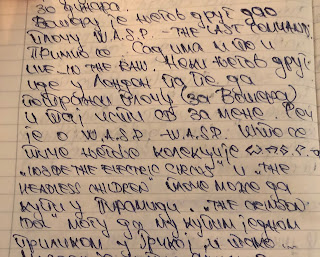 за динара.
Вошару је његов друг дао
плочу W.A.S.P. - THE LAST COMMAND.
Примио је. Сад има и то и
LIVE...IN THE RAW. Неки његов друг
иде у Лондон па ће да
потражи плочу (за Вошара)
и тај исти за мене. Реч
је о W.A.S.P. - W.A.S.P. Што се
тиче његове колекције W.A.S.P.-a
„INSIDE THE ELECTRIC CIRCUS" и „THE
HEADLESS CHILDREN" може да
купи у Пирамиди. „THE CRIMSON
IDOL" могу да му купим једном
приликом у Грчкој и тако...